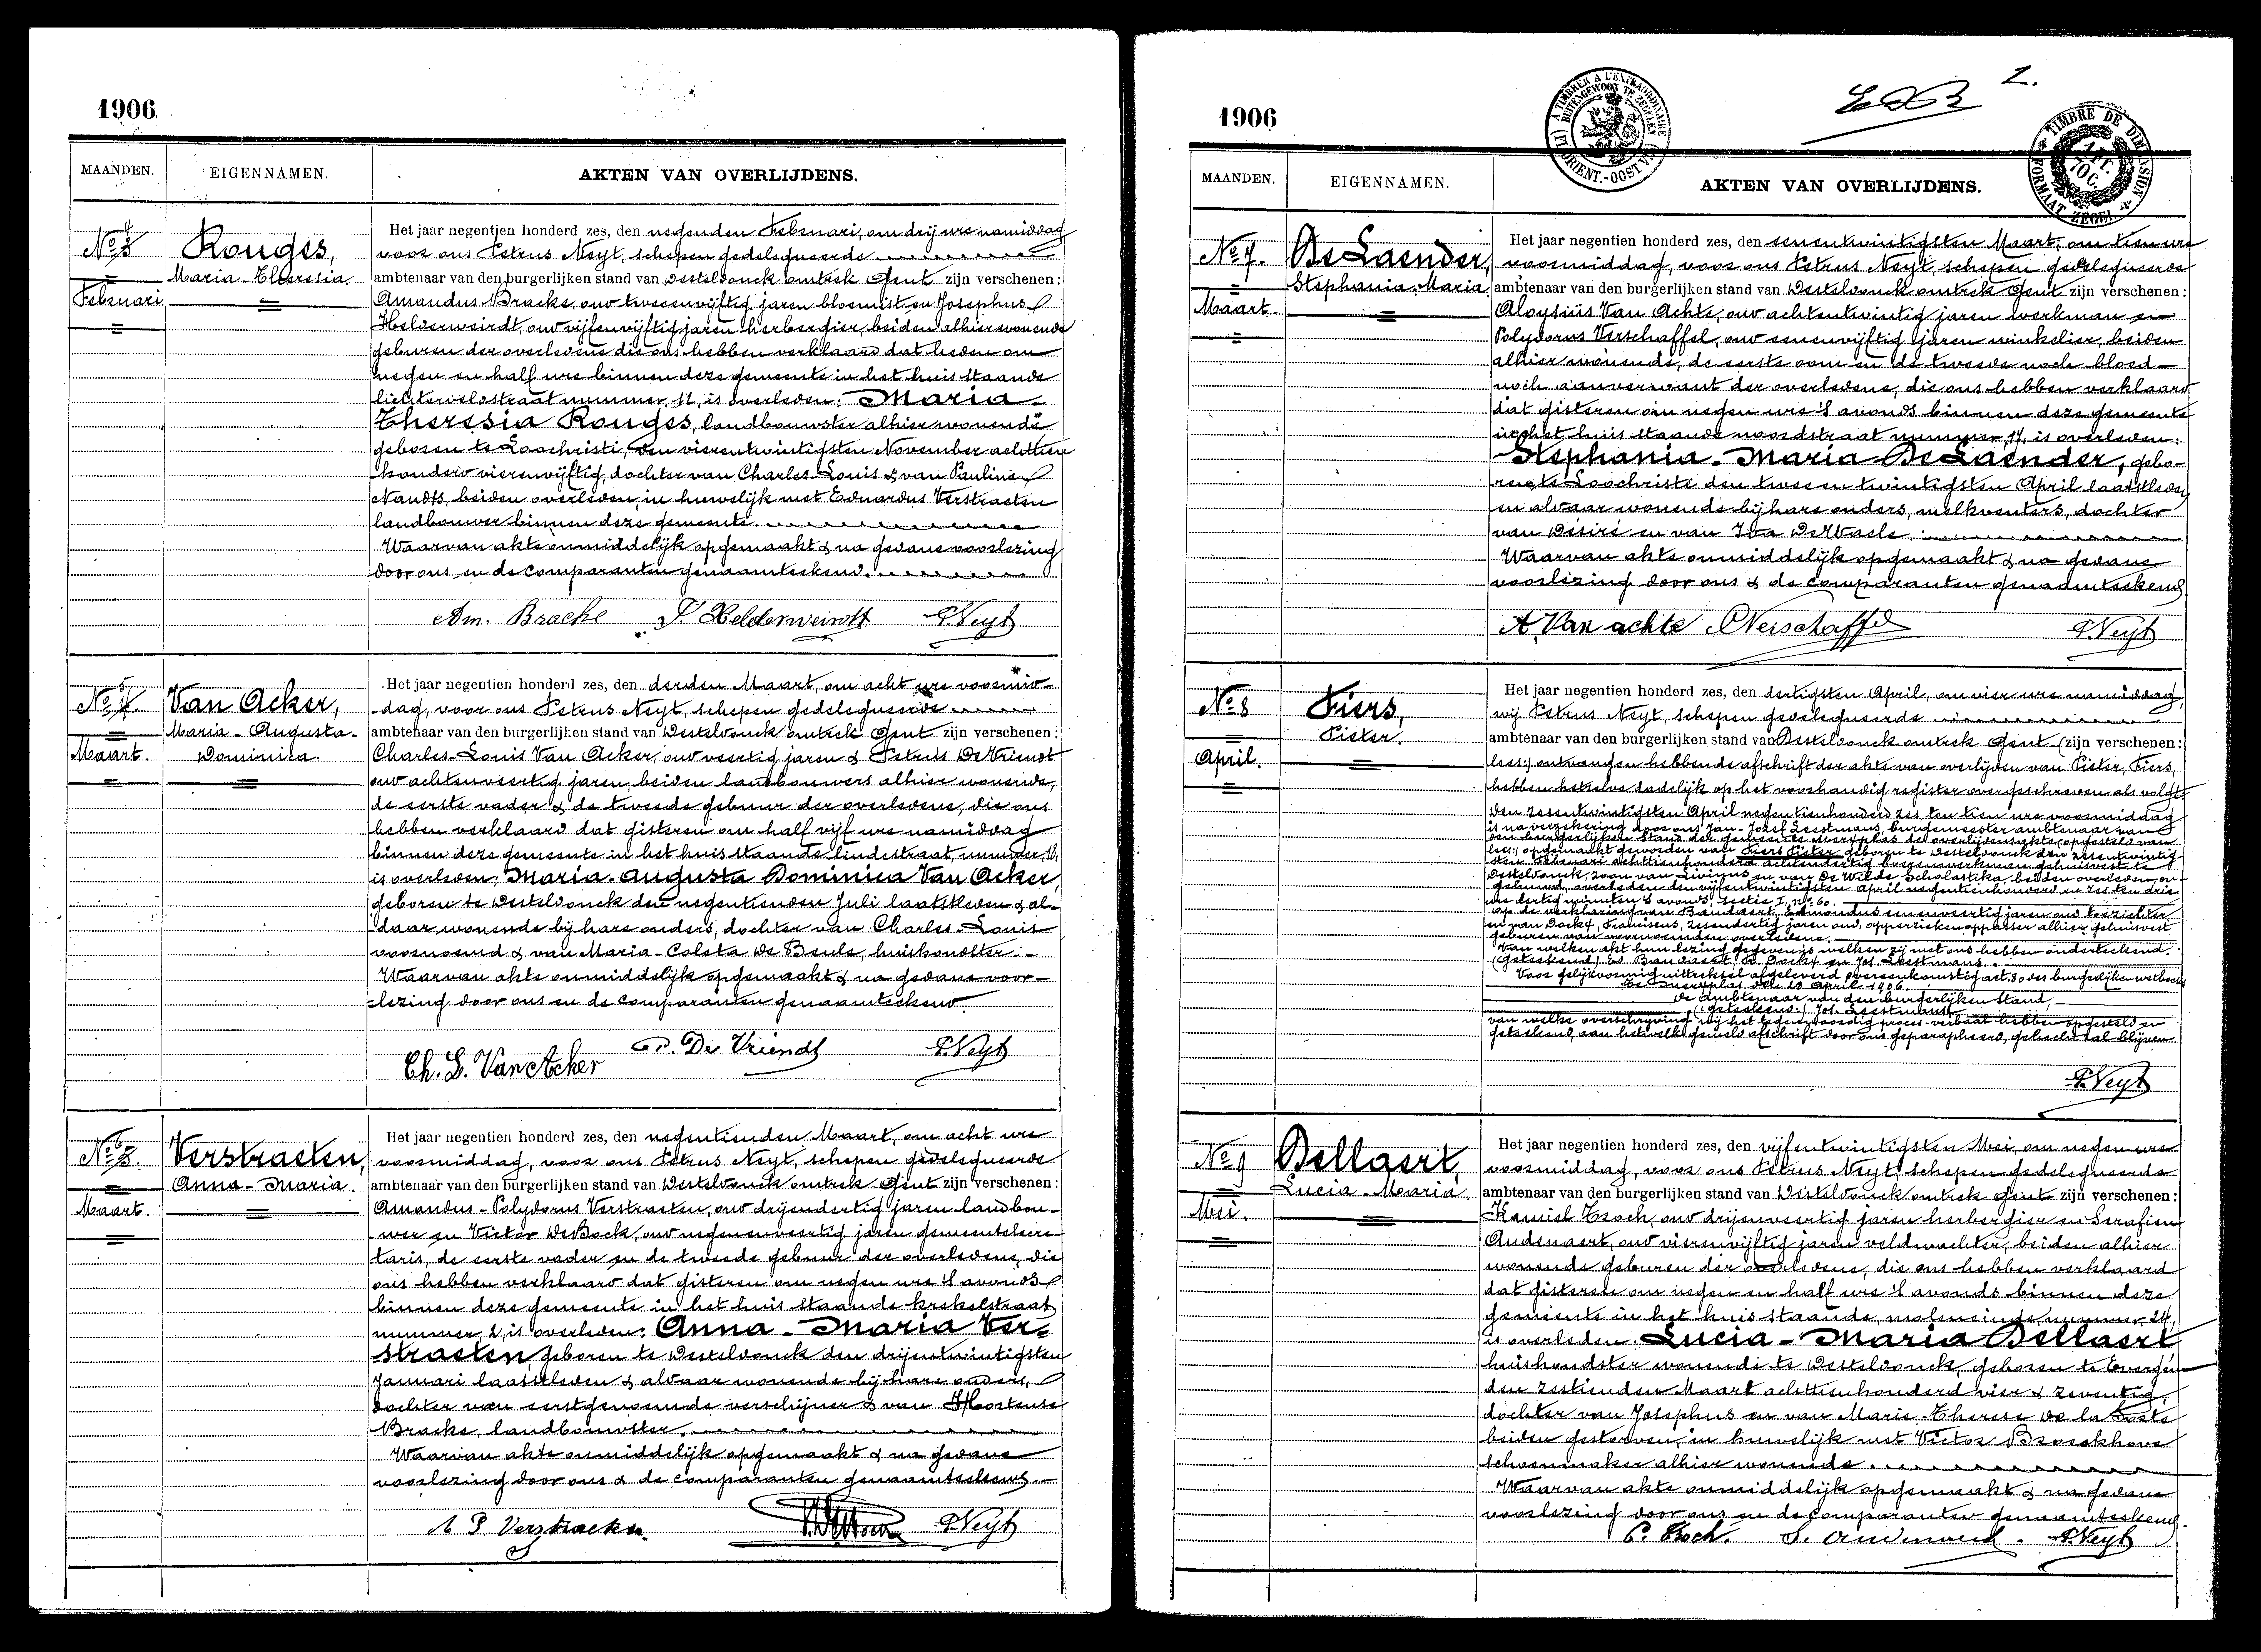 1906
MAANDEN.
EIGENNAMEN.
AKTEN VAN OVERLIJDENS.
No 4
Februari
Rouges,
Maria-Theresia.
Het jaar negentien honderd zes, den negenden Februari, om drij ure namiddag
voor ons Petrus Neyt, schepen gedelegueerde
ambtenaar van den burgerlijken stand van Desteldonck omtrek Gent zijn verschenen:
Amandus Bracke, oud tweeenvijftig jaren bloemist en Josephus
Helderweirdt, oud vijfenvijftig jaren herbergier, beiden alhier wonende
geburen der overledene die ons hebben verklaard dat heden om
negen en half ure binnen deze gemeente in het huis staande
lichterveldstraat nummer 12, is overleden: Maria-
Theresia Rouges, landbouwster alhier wonende
geboren te Loochristi, den vierentwintigsten November achttien
honderd vierenvijftig, dochter van Charles-Louis & van Paulina
Naudts, beiden overleden, in huwelijk met Eduardus Verstraeten
landbouwer binnen deze gemeente.
Waarvan akte onmiddelijk opgemaakt & na gedane voorlezing
door ons en de comparanten genaamteekend.
Am. Bracke J. Helderweirdt P. Neyt
No 5
Maart.
Van Acker,
Maria-Augusta-
Dominica
Het jaar negentien honderd zes, den derden Maart, om acht ure voormid-
dag, voor ons Petrus Neyt, schepen gedelegueerde
ambtenaar van den burgerlijken stand van Desteldonck omtrek Gent zijn verschenen:
Charles-Louis Van Acker, oud veertig jaren & Petrus De Vriendt
oud achtenveertig jaren, beiden landbouwers alhier wonende,
de eerste vader & de tweede gebuur der overledene, die ons
hebben verklaard dat gisteren om half vijf ure namiddag
binnen deze gemeente in het huis staande lindestraat, nummer 10,
is overleden: Maria-Augusta Dominica Van Acker,
geboren te Desteldonck den negentienden Juli laatstleden & al-
daar wonende bij hare ouders, dochter van Charles-Louis
voornoemd & van Maria-Coleta De Beule, huishoudster.-
Waarvan akte onmiddelijk opgemaakt & na gedane voor-
lezing door ons en de comparanten genaamteekend
Ch. L. Van Acker P. De Vriendt P. Neyt
No 6
Maart.
Verstraeten,
Anna-Maria.
Het jaar negentien honderd zes, den negentienden Maart, om acht ure
voormiddag, voor ons Petrus Neyt, schepen gedelegueerde
ambtenaar van den burgerlijken stand van Desteldonck omtrek Gent zijn verschenen:
Amandus-Polydorus Verstraeten, oud drijendertig jaren landbou-
wer en Victor De Bock, oud negenenveertig jaren gemeentesecre-
taris, de eerste vader en de tweede gebuur der overledene, die
ons hebben verklaard dat gisteren om negen ure 's avonds
binnen deze gemeente in het huis staande krekelstraat
nummer 2, is overleden: Anna-Maria Ver-
straeten, geboren te Desteldonck den drijentwintigsten
Januari laatstleden & aldaar wonende bij hare ouders,
dochter van eerstgenoemde verschijner & van Hortense
Bracke, landbouwster.
Waarvan akte onmiddelijk opgemaakt & na gedane
voorlezing door ons & de comparanten genaamteekend.
A P Verstraeten P. Neyt
1906
2.
A TIMBRER A L'EXTRAORDINAIRE
BUITENGEWOON TE ZEGELEN
FL. ORIENT.-OOST VL.
TIMBRE DE DIMENSION
FORMAAT ZEGEL
MAANDEN.
EIGENNAMEN.
AKTEN VAN OVERLIJDENS.
No 7.
Maart.
De Laender,
Stephania-Maria.
Het jaar negentien honderd zes, den eenentwintigsten Maart, om tien ure
voormiddag, voor ons Petrus Neyt, schepen gedelegueerde
ambtenaar van den burgerlijken stand van Desteldonck omtrek Gent zijn verschenen:
Aloysiüs Van Achte, oud achtentwintig jaren werkman en
Polydorus Verschaffel, oud eenenvijftig jaren winkelier, beiden
alhier wonende, de eerste oom en de tweede noch bloed-
noch aanverwant der overledene, die ons hebben verklaard
dat gisteren om negen ure 's avonds binnen deze gemeente
in het huis staande noordstraat nummer 17, is overleden:
Stephania-Maria De Laender, gebo-
ren te Loochristi den tweeentwintigsten April laatstleden
en aldaar wonende bij hare ouders, melkventers, dochter
van Désiré en van Ida De Waele.
Waarvan akte onmiddelijk opgemaakt & na gedane
voorlezing door ons & de comparanten genaamteekend
A Van achte P Verschaffel P. Neyt
No 8
April.
Fiers,
Pieter.
Het jaar negentien honderd zes, den dertigsten April, om vier ure namiddag,
wij Petrus Neyt, schepen gedelegueerde
ambtenaar van den burgerlijken stand van Desteldonck omtrek Gent (zijn verschenen:
lees:) ontvangen hebbende afschrift der akte van overlijden van Pieter, Fiers,
hebben hetzelve dadelijk op het voorhandig register overgeschreven als volgt:
Den zesentwintigsten April negentienhonderd zes ten tien ure voormiddag
is na verzekering door ons Jan-Jozef Leestmans, burgemeester ambtenaar van
den burgerlijken stand der gemeente Merxplas de overlijdensakte opgesteld van
lees:) opgemaakt geworden van Fiers Pieter geboren te Desteldonck den zesentwintig-
sten Februari achttienhonderd achtendertig boerenwerkman gehuisvest te
Desteldonck, zoon van Livinus en van De Wilde, Scholastika, beiden overleden, on-
gehuwd, overleden den vijfentwintigsten April negentienhonderd en zes ten drie
ure dertig minuten 's avonds, sectie I, no 60.
Op de verklaring van Baudaert, Edmondus eenenveertig jaren oud toezichter
en van Dockx, Franciscus, zesendertig jaren oud, opperziekenoppasser alhier gehuisvest
geburen van voornoemden overledene.
Van welken akt hun lezing gegeven is welken zij met ons hebben onderteekend.
(Geteekend) Ed Baudaert, Fr. Dockx en Jos. Leestmans.
Voor gelijkvormig uittreksel afgeleverd overeenkomstig art. 80 des burgerlijken wetboeks
Te Merxplas den 28 April 1906.
De ambtenaar van den burgerlijken stand,
(geteekend:) Jos. Leestmans
van welke overschrijving wij het tegenwoordig proces-verbaal hebben opgesteld en
geteekend, aan hetwelk gemeld afschrift door ons geparapheerd, gehecht zal blijven
P. Neyt
No 9
Mei.
Bellaert,
Lucia-Maria
Het jaar negentien honderd zes, den vijfentwintigsten Mei, om negen ure
voormiddag, voor ons Petrus Neyt, schepen gedelegueerde
ambtenaar van den burgerlijken stand van Desteldonck omtrek Gent zijn verschenen:
Kamiel Troch, oud drijenveertig jaren herbergier en Serafien
Audenaert, oud vierenvijftig jaren veldwachter, beiden alhier
wonende geburen der overledene, die ons hebben verklaard
dat gisteren om negen en half ure 's avonds binnen deze
gemeente in het huis staande, moleneinde nummer 24,
is overleden Lucia-Maria Bellaert
huishoudster wonende te Desteldonck, geboren te Evergem
den zestienden Maart achttienhonderd vier & zeventig,
dochter van Josephus en van Marie-Therese De la Coste
beiden gestorven, in huwelijk met Victor Broeckhove
schoenmaker alhier wonende.
Waarvan akte onmiddelijk opgemaakt & na gedane
voorlezing door ons en de comparanten genaamteekend.
C. Troch. S. Audenaert. P. Neyt